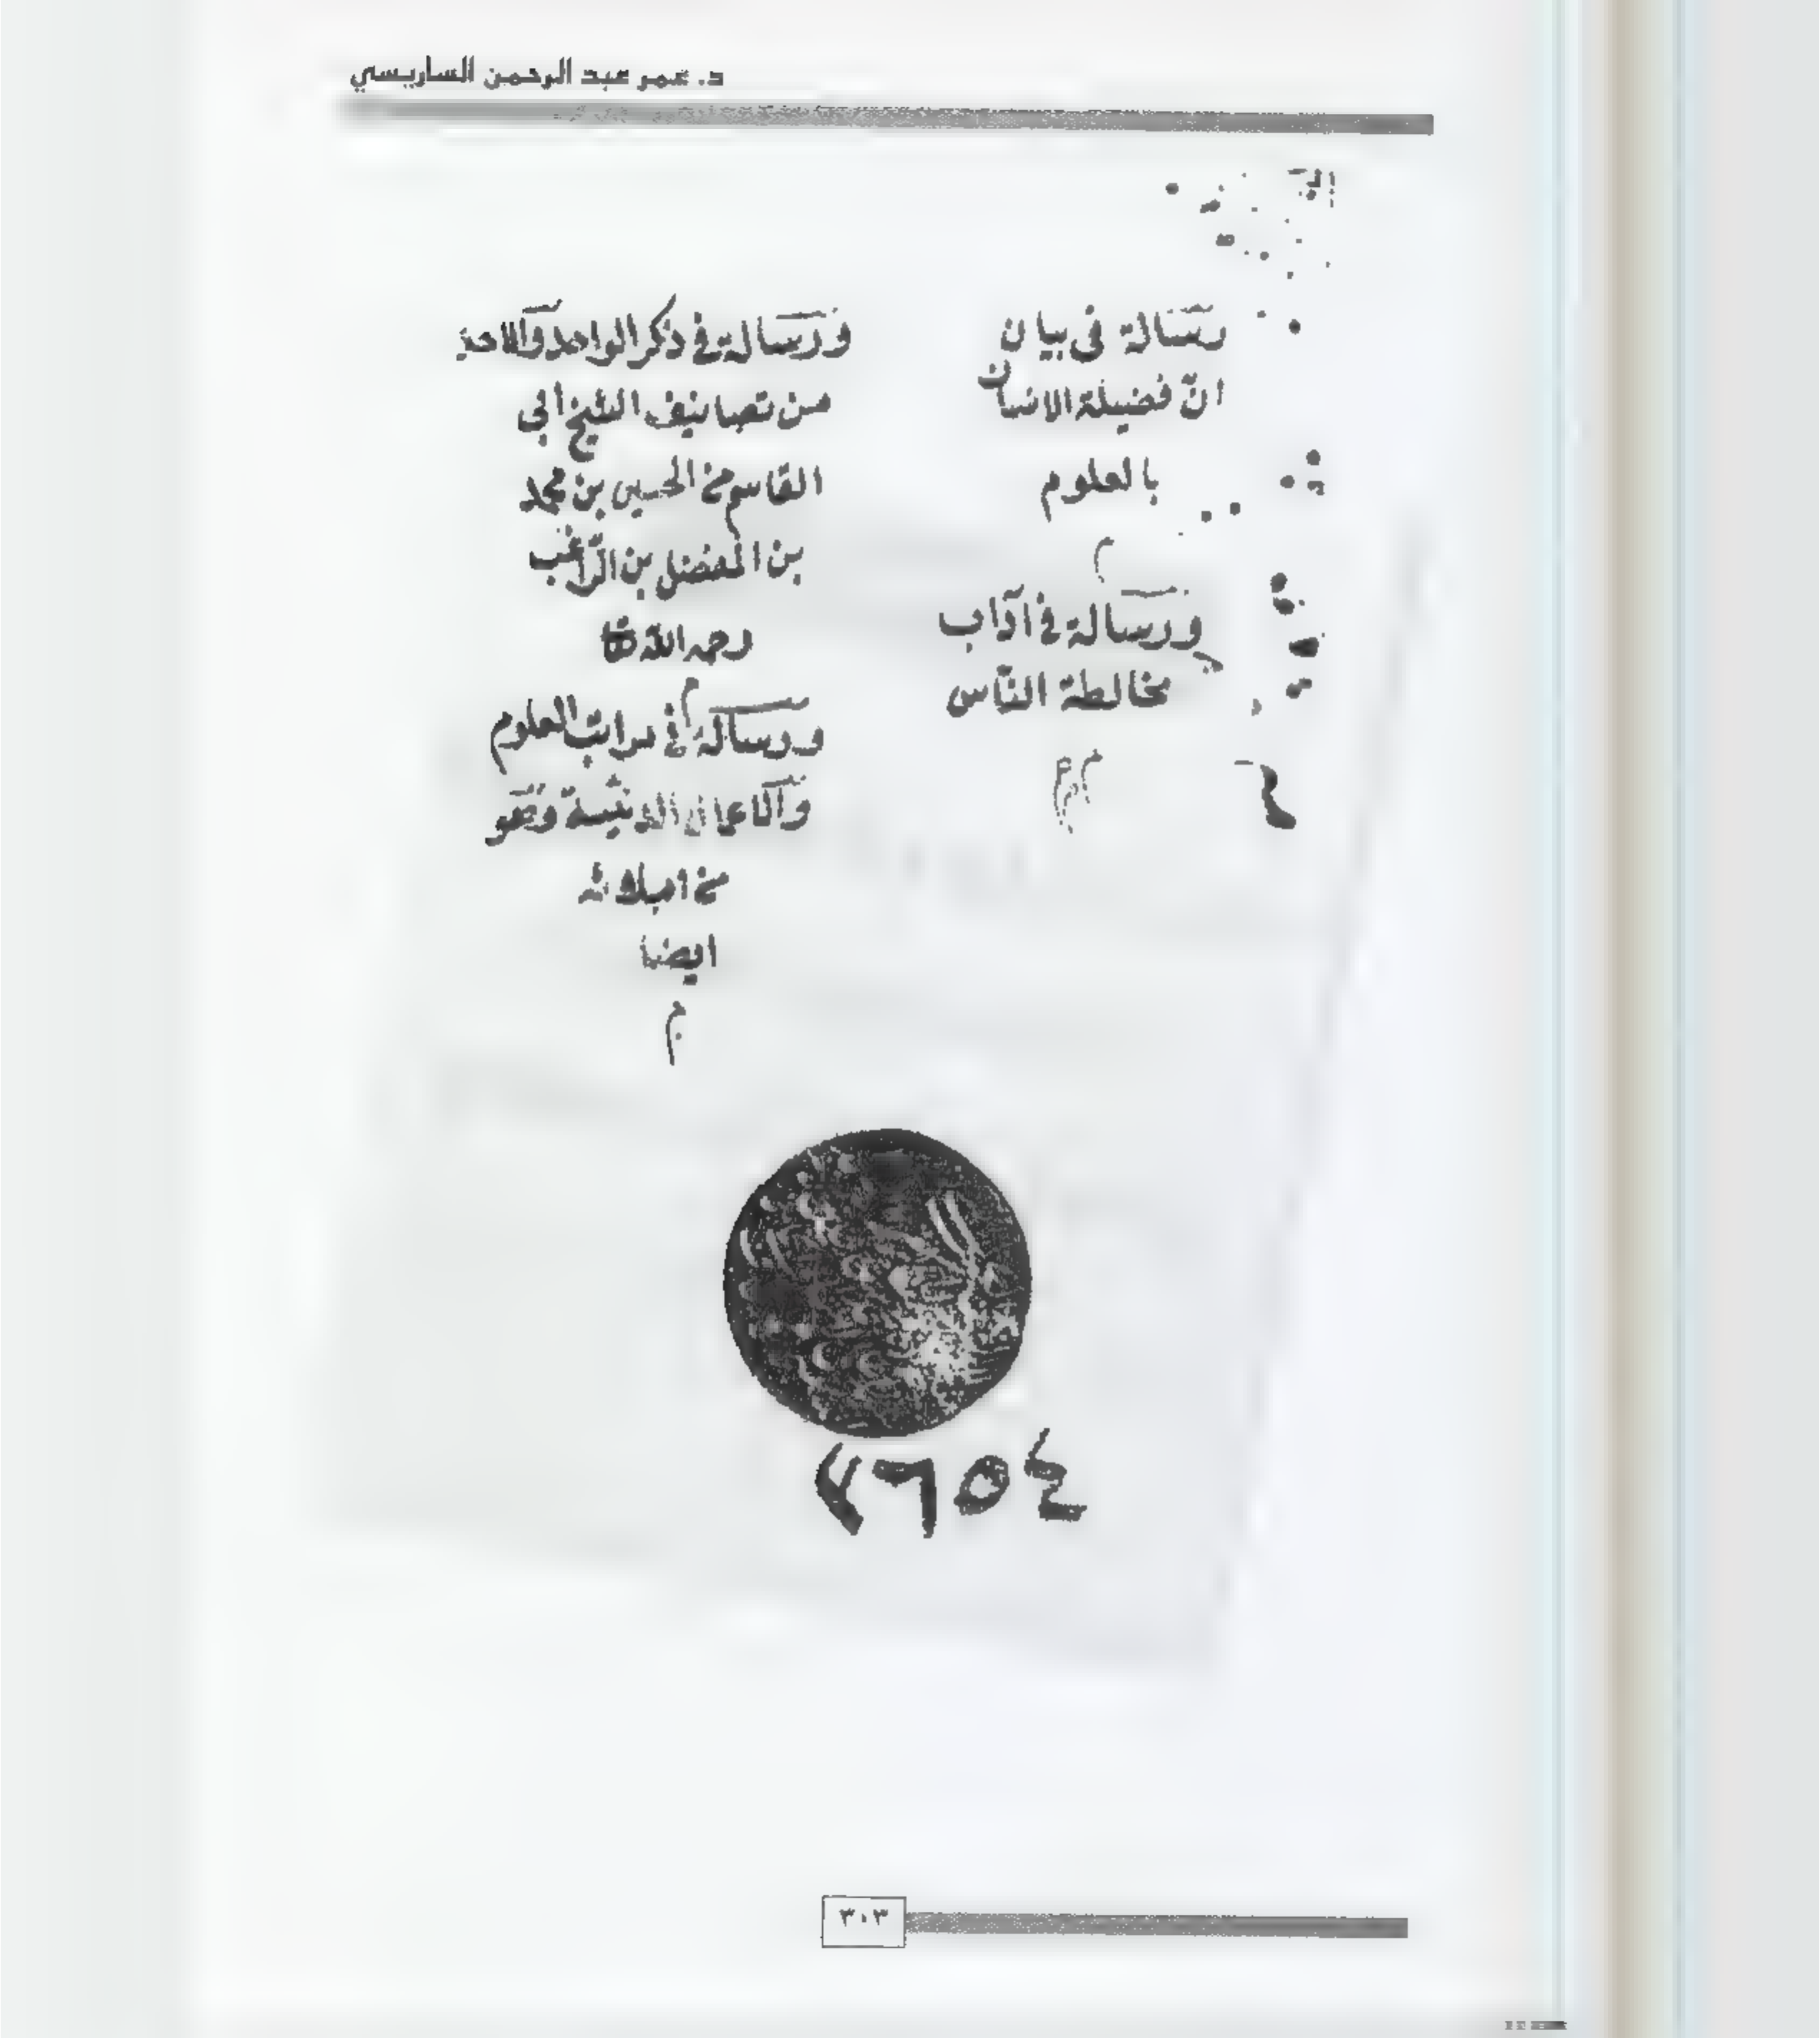 د. عمر عبد الرحمن الساريسي
رسالة في بيان
انّ فضيلة الانسان
بالعلوم
م
ورسالة في آداب
مخالطة الناس
ورسالة في ذكر الواحد والاحد
من تصانيف الشيخ ابي
القاسم الحسين بن محمد
بن المفضل بن الراغب
رحمه الله تعا
م
ورسالة في مراتب العلوم
والاعمال الدنيية
ايضا
م
٤٥٦٢
٣٠٣